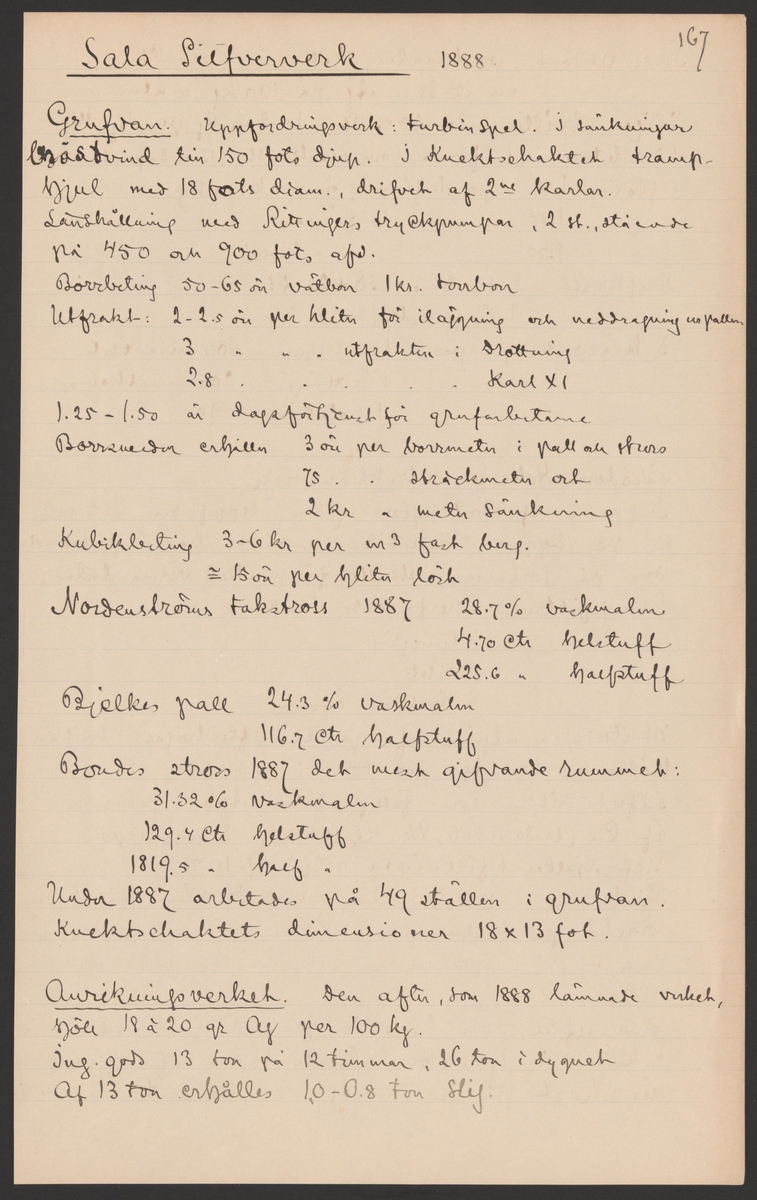 167
Sala Silfververk 1888.
Grufvan. Uppfordringsverk: turbinspel. I sänkningar
handvind till 150 fots djup. I Knektschaktet tramp-
hjul med 18 fots diam., drifvet af 2ne karlar.
Länshållning med Rittingers tryckpumpar, 2 st., stående
på 450 och 900 fots afd.
Borrbeting 50-65 öre våtborr 1 kr. torrborr
Utfrakt: 2-2.5 öre per hliter för iläggning och neddragning
3 " " " utfrakten i Drottning
2.8 . . . . Karl XI
1.25-1.50 är dagsförtjenst för grufarbetarne
Borrsmeder erhåller 3 öre per borrmeter i pall och stross
75 . . sträckmeter och
2 kr " meter sänkning
Kubikbeting 3-6 kr per m3 fast berg.
≅ 15 öre per hliter löst
Nordenströms takstross 1887 28.7% vaskmalm
4.70 Ctr helstuff
225.6 " halfstuff
Bjelkes pall 24.3 % vaskmalm
116.7 Ctr halfstuff
Bondes stross 1887 det mest gifvande rummet:
31.32 % vaskmalm
129.4 Ctr helstuff
1819.5 " half "
Under 1887 arbetades på 49 ställen i grufvan.
Knektschaktets dimensioner 18 x 13 fot.
Anrikningsverket. Den after, som 1888 lämnade verket,
höll 18 à 20 gr Ag per 100 kg.
Ing. gods 13 ton på 12 timmar, 26 ton i dygnet
Af 13 ton erhålles 1,0-0.8 ton slig.